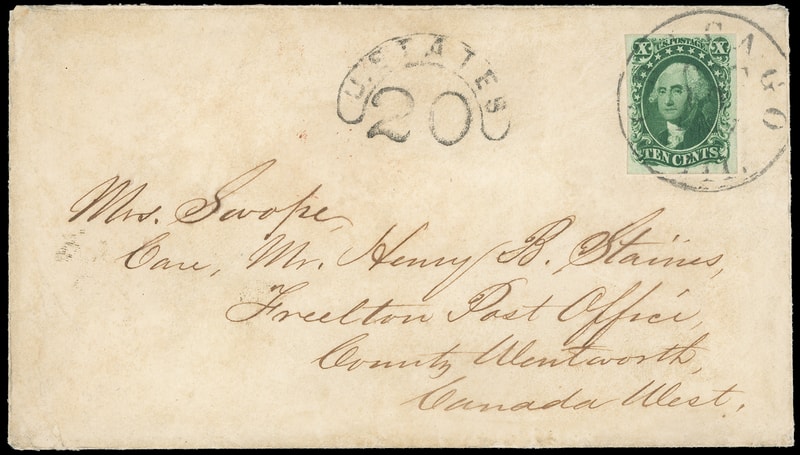 U. STATES
20
X U.S. POSTAGE X
TEN CENTS
CAGO
ILL
Mrs. Swope,
Care, Mr. Henry B. Staines,
Freelton Post Office,
County Wentworth,
Canada West.